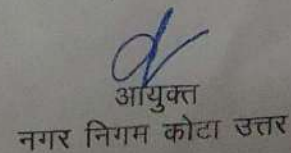 आयुक्त
नगर निगम कोटा उत्तर